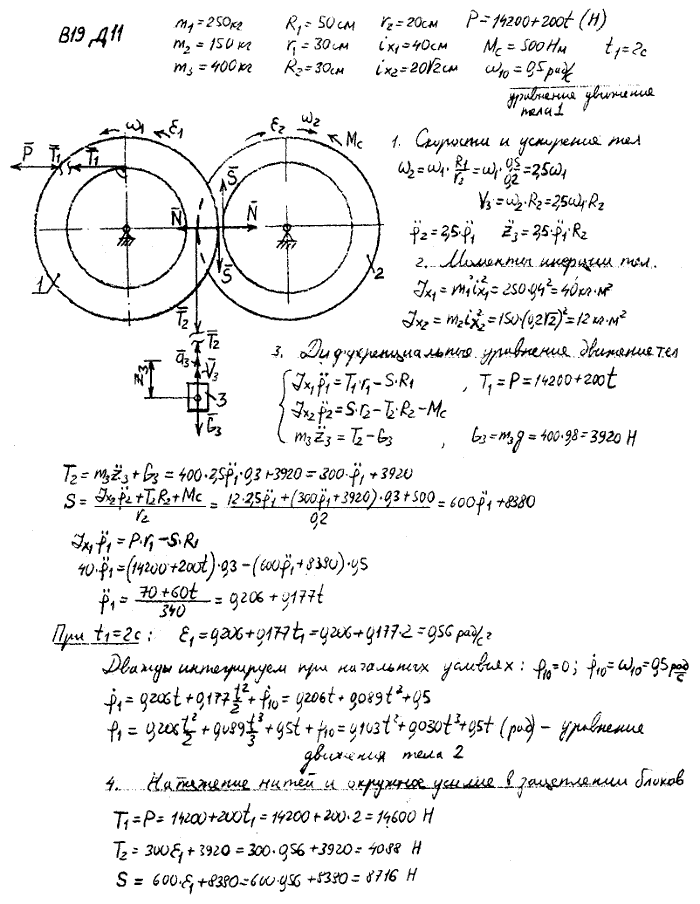 В19 Д11
m₁=250кг R₁=50см r₂=20см P=14200+200t (Н)
m₂=150кг r₁=30см iх₁=40см Mc=500Нм t₁=2с
m₃=400кг R₂=30см iх₂=20√2см ω₁₀=0,5рад/с
уравнение движения
тела 1
ω₁ ε₁ ε₂ ω₂ Mc
P̄ T̄₁ T̄₁ S̄
N̄ N̄
1 S̄ 2
T̄₂
T̄₂
ā₃ V̄₃
3
Ḡ₃
1. Скорости и ускорения тел
ω₂=ω₁·R₁/r₂=ω₁·0,5/0,2=2,5ω₁
V₃=ω₂·R₂=2,5ω₁R₂
φ̈₂=2,5φ̈₁ z̈₃=2,5·φ̈₁·R₂
2. Моменты инерции тел.
Jх₁=m₁iх₁²=250·0,4²=40кг·м²
Jх₂=m₂iх₂²=150·(0,2√2)²=12кг·м²
3. Дифференциальные уравнения движения тел
Jх₁φ̈₁=T₁·r₁-S·R₁ , T₁=P=14200+200t
Jх₂φ̈₂=S·r₂-T₂·R₂-Mc
m₃z̈₃=T₂-G₃ , G₃=m₃g=400·9,8=3920 Н
T₂=m₃z̈₃+G₃=400·2,5φ̈₁·0,3+3920=300·φ̈₁+3920
S=(Jх₂φ̈₂+T₂R₂+Mc)/r₂=(12·2,5φ̈₁+(300φ̈₁+3920)·0,3+500)/0,2=600φ̈₁+8380
Jх₁φ̈₁=P·r₁-S·R₁
40·φ̈₁=(14200+200t)·0,3-(600φ̈₁+8380)·0,5
φ̈₁=(70+60t)/340=0,206+0,177t
При t₁=2с: ε₁=0,206+0,177t₁=0,206+0,177·2=0,56рад/с²
Дважды интегрируем при начальных условиях: φ₁₀=0; φ̇₁₀=ω₁₀=0,5рад/с
φ̇₁=0,206t+0,177t²/2+φ̇₁₀=0,206t+0,089t²+0,5
φ₁=0,206t²/2+0,089t³/3+0,5t+φ₁₀=0,103t²+0,030t³+0,5t (рад) – уравнение
движения тела 2
4. Натяжение нитей и окружное усилие в зацеплении блоков
T₁=P=14200+200t₁=14200+200·2=14600 Н
T₂=300ε₁+3920=300·0,56+3920=4088 Н
S=600·ε₁+8380=600·0,56+8380=8716 Н